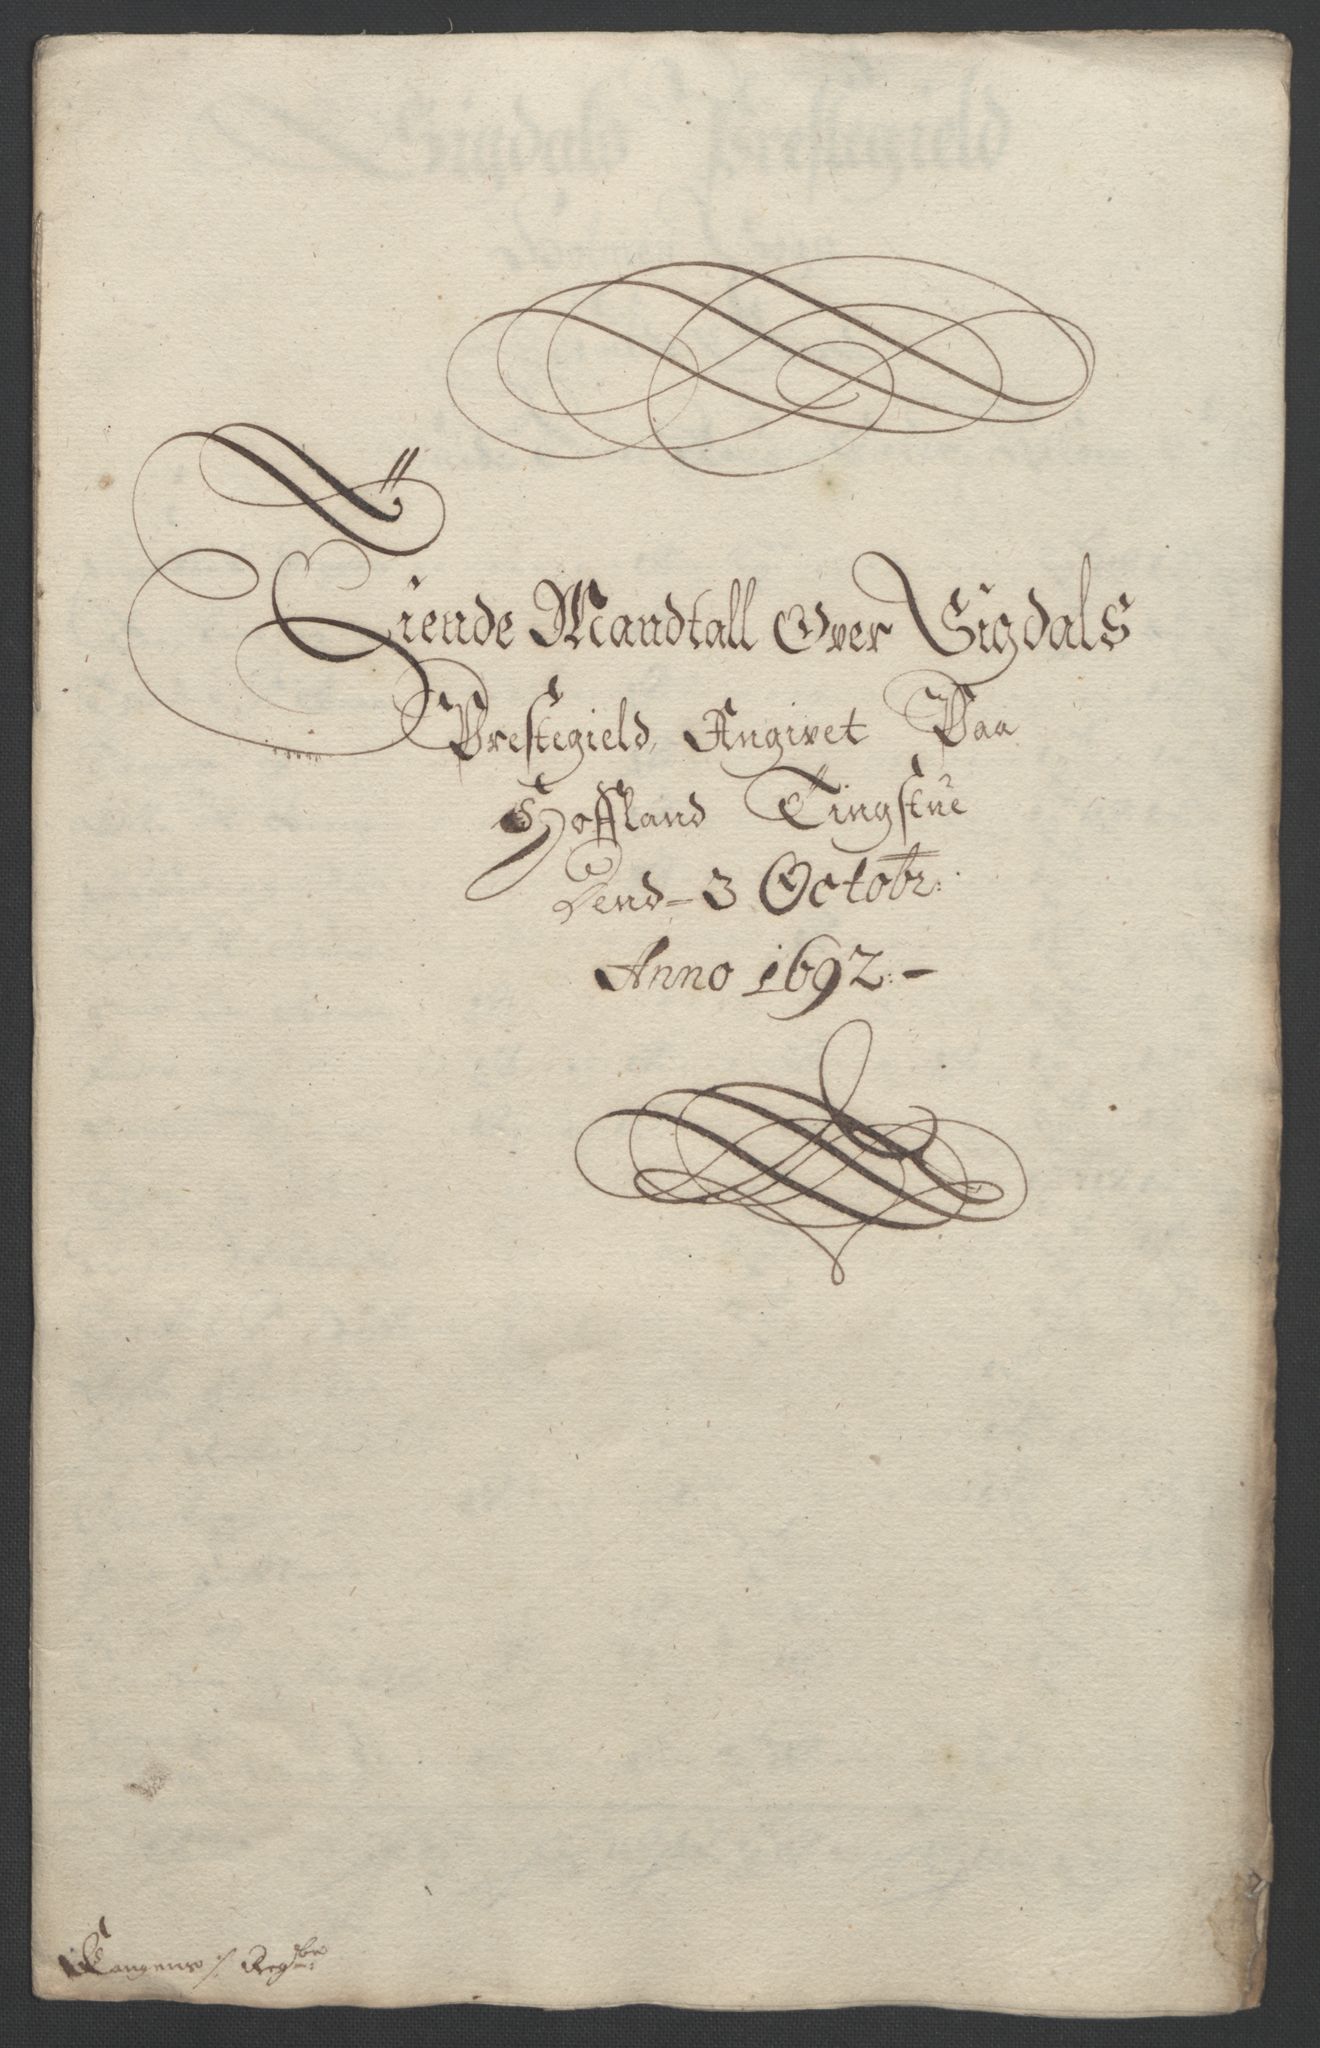 Tiende Mandtall Over Sigdals
Prestegield, Angivet Paa
Hoffland Tingstue
Dend - 3 Octobr:
Anno 1692: -